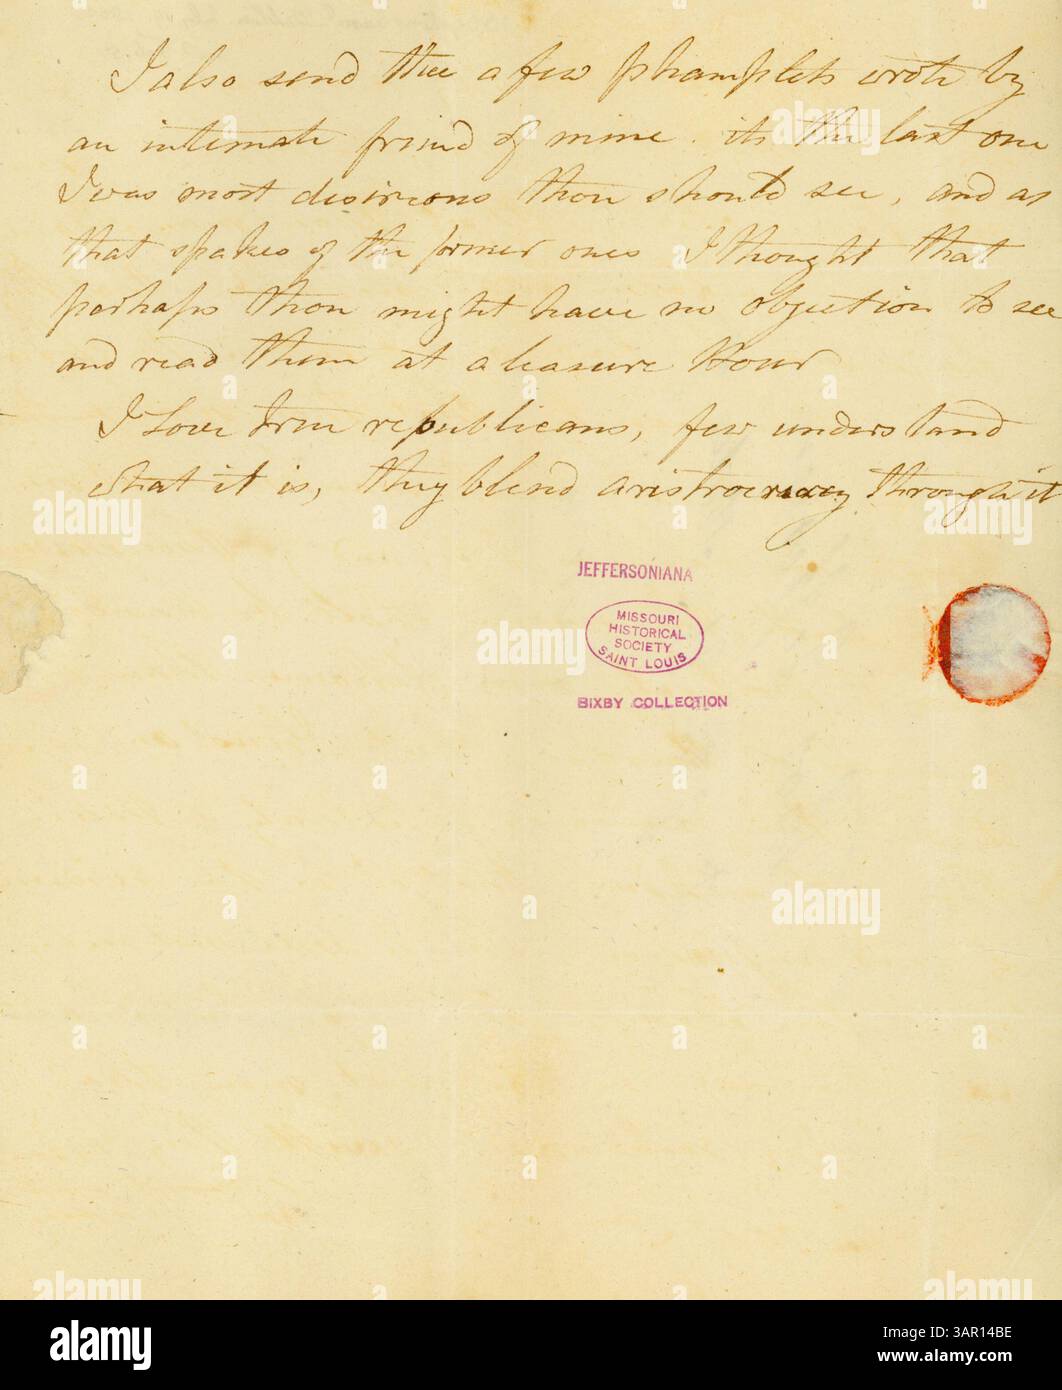 I also send thee a few phamplets wrote by
an intemate friend of mine. its the last one
I was most desirious thou should see, and as
that spakes of the former ones I thought that
perhaps thou might have no objection to see
and read them at a leasure Hour
I Love true republicans, few understand
what it is, they blend aristrocracy through it
JEFFERSONIANA
MISSOURI
HISTORICAL
SOCIETY
SAINT LOUIS
BIXBY COLLECTION
alamy
alamy
alamy
alamy
alamy
alamy
alamy
alamy
Image ID: 3AR14BE
www.alamy.com